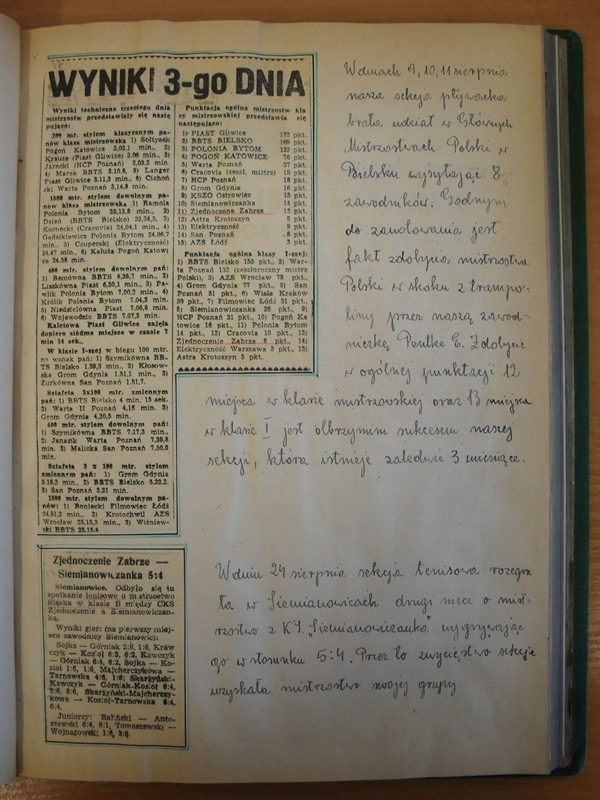 WYNIKI 3-go DNIA
Wyniki techniczne trzeciego dnia
mistrzostw przedstawiały się nastę
pująco:
200 mtr. stylem klasycznym pa-
nów klasa mistrzowska 1) Sołtysek
Pogoń Katowice 3,02,1 min., 2)
Krauze (Piast Gliwice) 3.06 min., 3)
Jarecki (HCP Poznań) 3,03,2 min.
4) Marek BBTS 3,10,8, 5) Langer
Piast Gliwice 3,11,2 min., 6) Cichoń
ski Warta Poznań 3,14,9 min.
1500 mtr. stylem dowolnym pa-
nów klasa mistrzowska 1) Ramola
Polonia Bytom 23,12,8 min., 2)
Dzień (BBTS Bielsko) 23,24,5, 3)
Kornecki (Cracovia) 24,04,1 min., 4)
Gadzikiewicz Polonia Bytom 24,06,7
min., 5) Czuperski (Elektryczność)
24,47 min., 6) Kałuża Pogoń Katowi
ce 24.58 min.
400 mtr. stylem dowolnym pań:
1) Remówna BBTS 6,29,7 min., 2)
Liszkówna Piast 6,50,1 min., 3) Pa-
wlik Polonia Bytom 7,00,2 min., 4)
Królik Polonia Bytom 7,04,2 min.
5) Niedzielówna Piast 7,06,8 min.
6) Wojewodzic BBTS 7,07,5 min.
Kaletowa Piast Gliwice zajęła
dopiero siódme miejsce w czasie 7
min 14 sek.
W klasie I-szej w biegu 100 mtr.
na wznak pań: 1) Szymikówna BB-
TS Bielsko 1,30,3 min., 2) Kłosow-
ska Grom Gdynia 1.31,1 min., 3)
Żurkówna San Poznań 1.31,7.
Sztafeta 3x100 mtr. zmiennym
pań: 1) BBTS Bielsko 4 min. 15 sek.
2) Warta II Poznań 4,16 min. 3)
Grom Gdynia 4,20,5 min.
400 mtr. stylem dowolnym pań:
1) Szymikówna BBTS 7,17,3 min.,
2) Janasik Warta Poznań 7,39,8
min. 3) Malicka San Poznań 7,50,9
min.
Sztafeta 3 x 100 mtr. stylem
zmiennym pań: 1) Grom Gdynia
5.19,3 min., 2) BBTS Bielsko 5,22.2.
3) San Poznań 5,31 min.
1500 mtr. stylem dowolnym pa-
nów: 1) Boniecki Filmowiec Łódź
24,51,2 min., 2) Krotochwil AZS
Wrocław 25,13,3 min., 3) Wiśniew-
ski BBTS 25,15.4
Punktacja ogólna mistrzostw kla
sy mistrzowskiej przedstawia się
następująco:
1) PIAST Gliwice 172 pkt.
2) BBTS BIELSKO 169 pkt.
3) POLONIA BYTOM 122 pkt.
4) POGOŃ KATOWICE 76 pkt.
5) Warta Poznań 37 pkt.
6) Cracovia (zeszł. mistrz) 19 pkt.
7) HCP Poznań 18 pkt.
8) Grom Gdynia 16 pkt.
9) KSZO Ostrowiec 15 pkt.
10) Siemianowiczanka 14 pkt.
11) Zjednoczone Zabrze 13 pkt.
12) Astra Krotoszyn 9 pkt.
13) Elektryczność 9 pkt.
14) San Poznań 8 pkt.
15) AZS Łódź 3 pkt.
Punktacja ogólna klasy I-szej:
1) BBTS Bielsko 153 pkt., 2) War-
ta Poznań 133 (zeszłoroczny mistrz
Polski), 3) AZS Wrocław 79 pkt.,
4) Grom Gdynia 77 pkt., 5) San
Poznań 51 pkt., 6) Wisła Kraków
39 pkt., 7) Filmowiec Łódź 31 pkt.,
8) Siemianowiczanka 26 pkt., 9)
HCP Poznań 21 pkt., 10) Pogoń Ka
towice 16 pkt., 11) Polonia Bytom
14 pkt., 12) Cracovia 10 pkt., 13)
Zjednoczenie Zabrze 8 pkt., 14)
Elektryczność Warszawa 5 pkt., 15)
Astra Krotoszyn 5 pkt.
W dniach 9, 10, 11 sierpnia
nasza sekcja pływacka
brała udział w Głównych
Mistrzostwach Polski w
Bielsku wysyłając 8
zawodników. Godnym
do zanotowania jest
fakt zdobycia mistrzostwa
Polski w skoku z trampo-
liny przez naszą zawod-
niczkę Peutke E. Zdobycie
w ogólnej punktacji 12
miejsca w klasie mistrzowskiej oraz 13 miejsca
w klasie I jest olbrzymim sukcesem naszej
sekcji, która istnieje zaledwie 3 miesiące.
Zjednoczenie Zabrze —
Siemianowiczanka 5:4
Siemianowice. Odbyło się tu
spotkanie tenisowe o mistrzostwo
Śląska w klasie B między CKS
Zjednoczenie a Siemianowiczan-
ką.
Wyniki gier: (na pierwszy miej-
scu zawodnicy Siemianowic):
Sojka — Górniak 2:6, 1:6, Kraw
czyk — Kozioł 6:3, 6:2, Kawczyk
— Górniak 6:4, 6:2, Sojka — Ko-
zioł 1:6, 1:6, Majcherczykowa —
Tarnowska 4:6, 1:6; Skarżyński-
Kawczyk — Górniak-Kozioł 6:4,
1:6, 3:6, Skarżyński-Majcherczy-
kowa — Kozioł-Tarnowska 6:4,
6:4.
Juniorzy: Baliński — Anto-
szewski 6:4, 6:1, Tomaszewski —
Wojnarowski 1:6, 3:6
W dniu 24 sierpnia sekcja tenisowa rozegra
ła w Siemianowicach drugi mecz o mist-
rzostwo z K.S. „Siemianowiczanka" wygrywając
go w stosunku 5:4. Przez to zwycięstwo sekcja
uzyskała mistrzostwo swojej grupy.